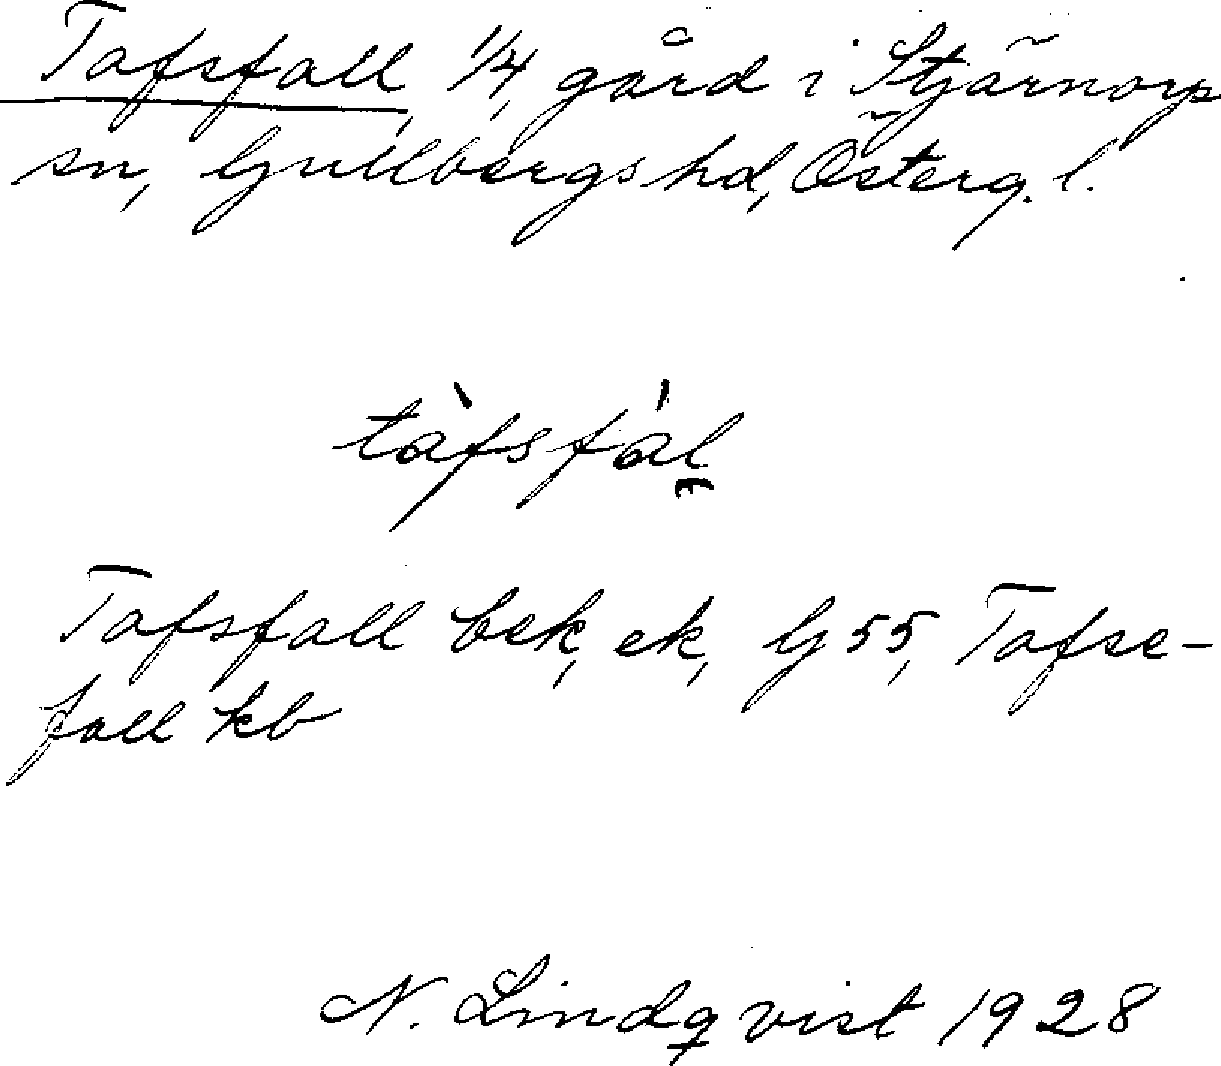 Tafsfall, 1/4 gård i Stjärnorps
sn, Gullbergs hd, Österg. l.
tàfsfál̰
Tafsfall bek, ek, G 55, Tafse-
fall kb
N. Lindqvist 1928